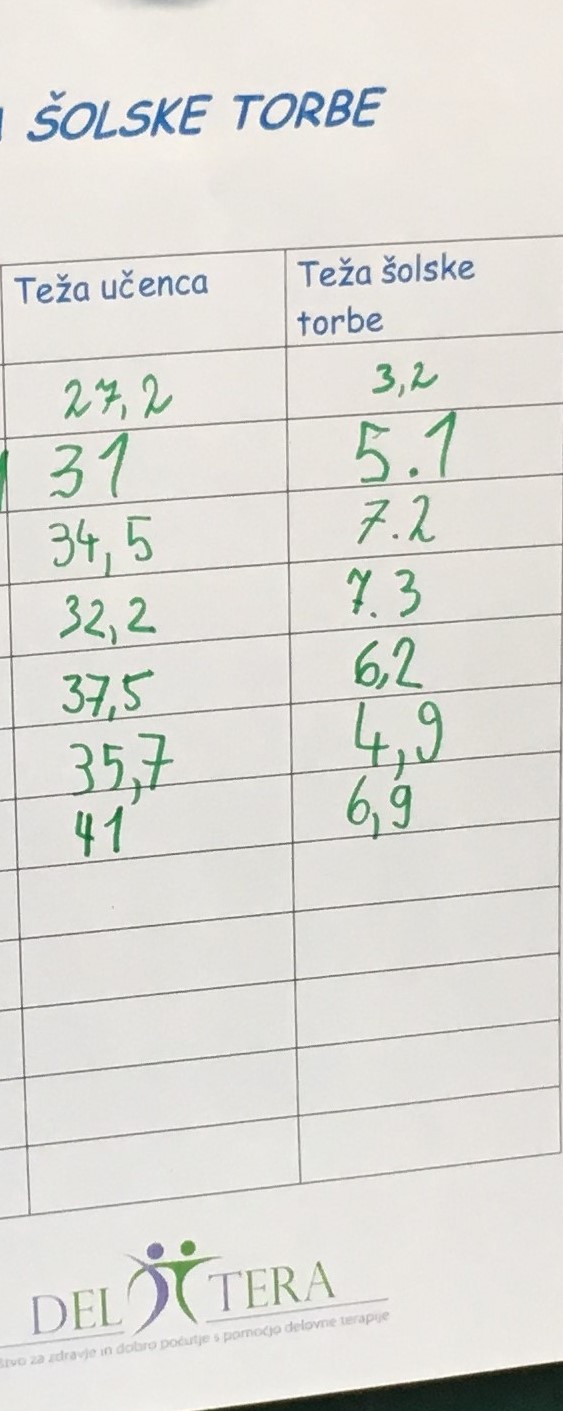 ŠOLSKE TORBE
Teža učenca Teža šolske torbe
27,2 3,2
31 5.1
34,5 7.2
32,2 7.3
37,5 6,2
35,7 4,9
41 6,9
DEL TERA
za zdravje in dobro počutje s pomočjo delovne terapije